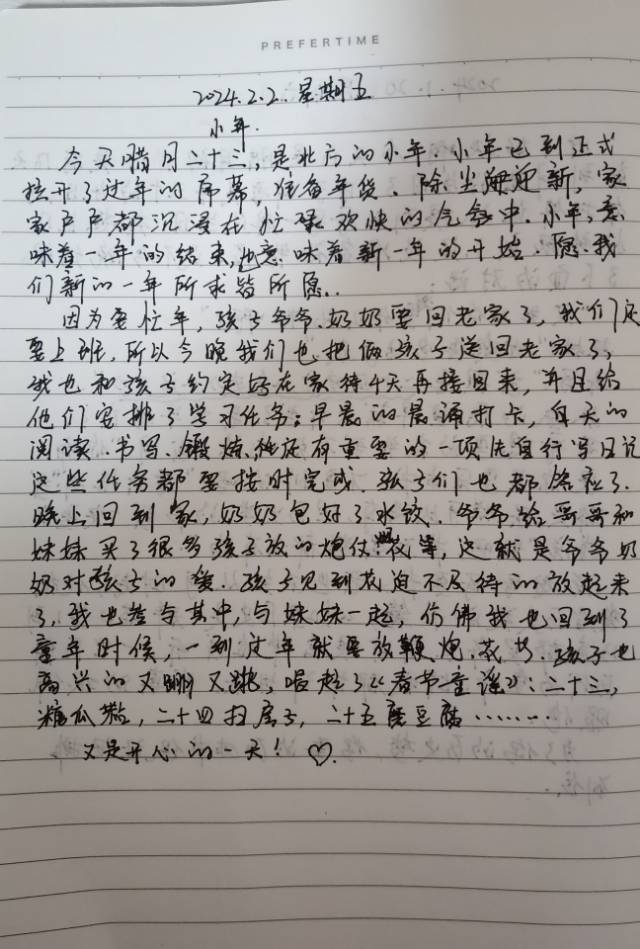 PREFERTIME
2024.2.2.星期五
小年.
今天腊月二十三,是北方的小年.小年已到正式
拉开了过年的序幕,准备年货.除尘迎新,家
家户户都沉浸在忙碌欢快的气氛中.小年,意
味着一年的结束,也意味着新一年的开始.愿我
们新的一年所求皆所愿..
因为要忙年,孩子爷爷.奶奶要回老家了,我们还
要上班,所以今晚我们也把俩孩子送回老家了,
我也和孩子约定好在家待4天再接回来,并且给
他们安排了学习任务:早晨的晨诵打卡,每天的
阅读.书写.锻炼.还有重要的一项优自行写日记
这些任务都要按时完成.孩子们也都答应了.
晚上回到家,奶奶包好了水饺.爷爷给哥哥和
妹妹买了很多孩子放的炮仗花等,这就是爷爷奶
奶对孩子的爱.孩子见到花迫不及待的放起来
了,我也参与其中,与妹妹一起,仿佛我也回到了
童年时候,一到过年就要放鞭炮.花.孩子也
高兴的又蹦又跳,唱起了《春节童谣》:二十三,
糖瓜粘,二十四扫房子,二十五磨豆腐........
又是开心的一天!♡.